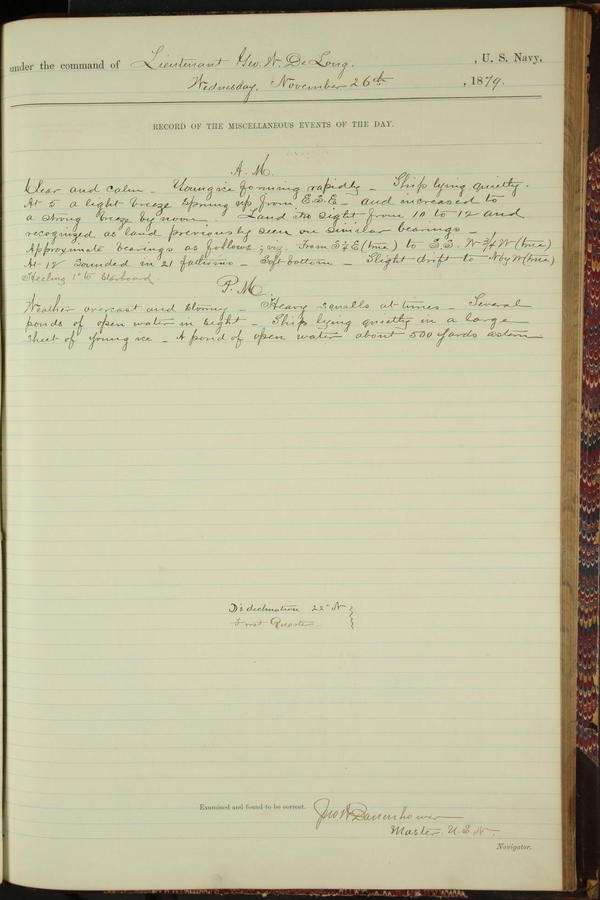 under the command of Lieutenant Geo. W. De Long. , U. S. Navy,
Wednesday, November 26th , 1879.
RECORD OF THE MISCELLANEOUS EVENTS OF THE DAY.
A. M.
Clear and calm – Young ice forming rapidly – Ship lying quietly.
At 5 a light breeze sprung up from E.S.E – and increased to
a strong breeze by noon. Land in sight from 10 to 12 and
recognized as land previously seen on similar bearings –
Approximate bearings as follows; viz. From (true) to W ¾ W (true)
At 12 sounded in 21 fathoms – Soft bottom – Slight drift to N by W (true)
Heeling 1° to starboard
P. M.
Weather overcast and stormy – Heavy squalls at times – Several
ponds of open water in sight – Ship lying quietly in a large
sheet of young ice – A pond of open water about 500 yards astern
declination 22° N
First Quarter
Examined and found to be correct. Jno W Danenhower
Master. U. S. N.
Navigator.